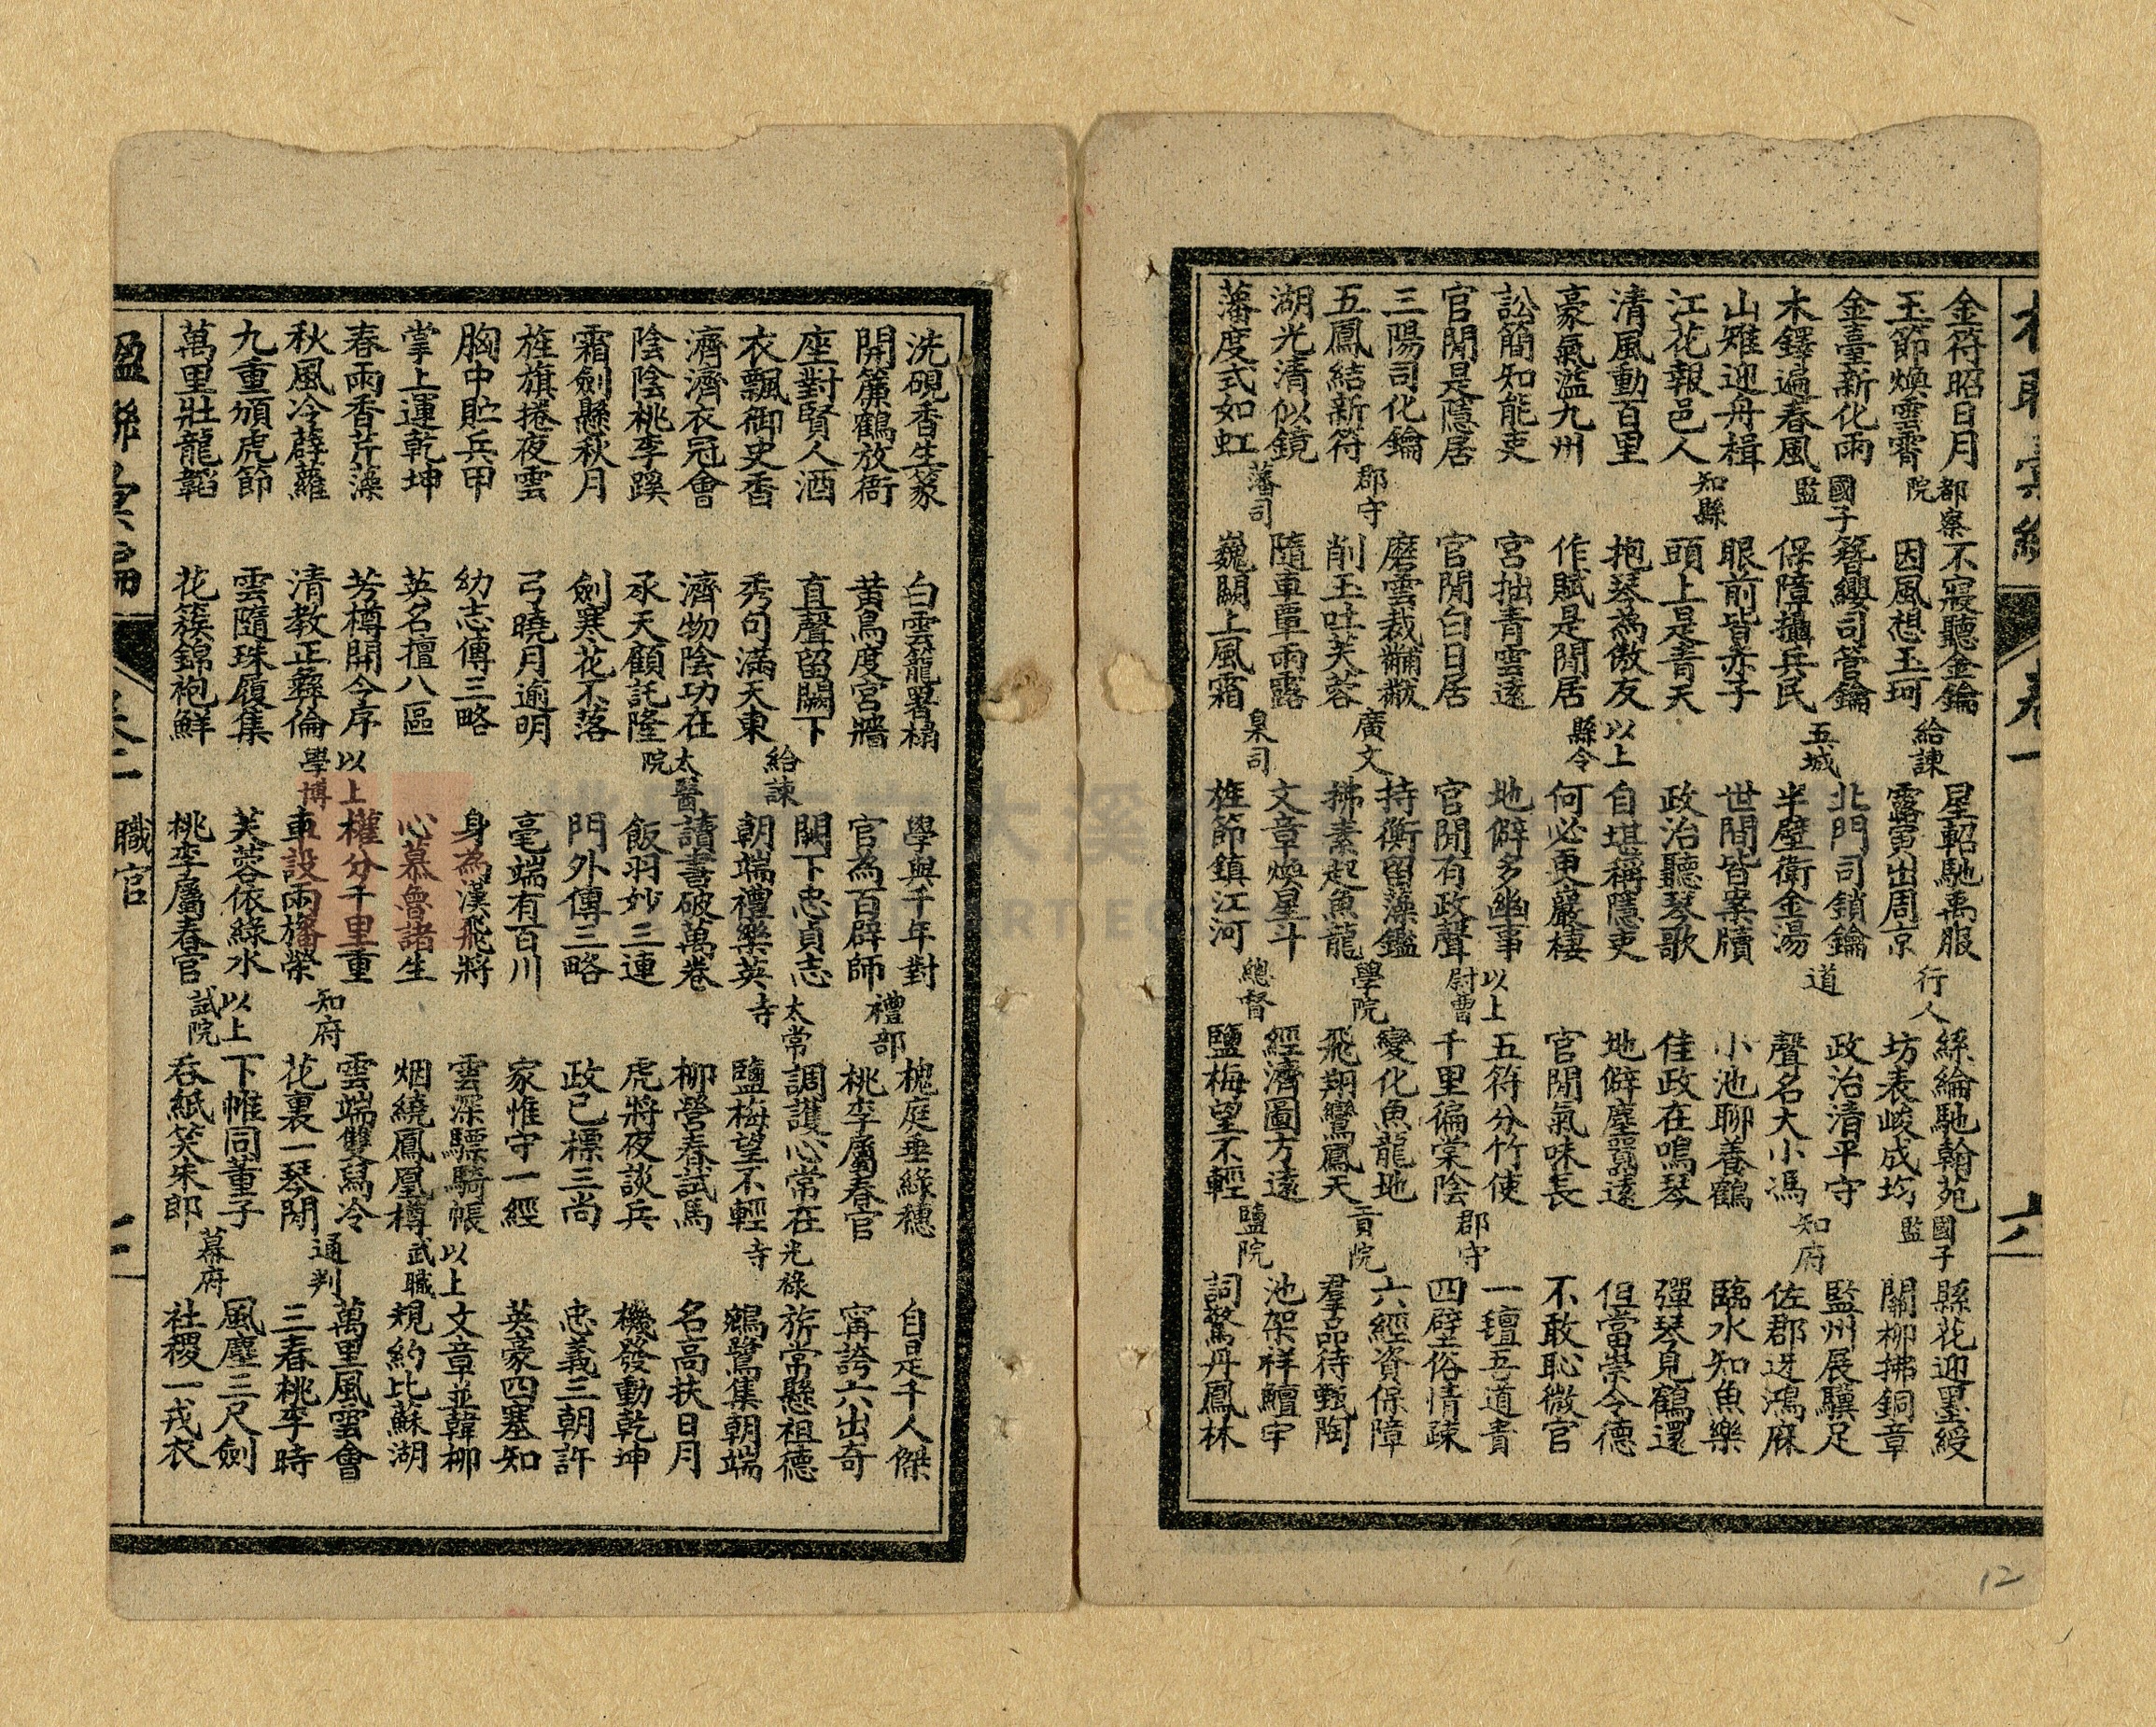 金符昭日月 都察 不寢聽金鑰 給諫 星軺馳禹服 行人 絲綸馳翰苑 國子 縣花迎墨綬
玉節煥雲霄 院 因風想玉珂 露寅出周京 坊表峻成均 監 關柳拂銅章
金臺新化雨 國子 簪纓司管鑰 五城 北門司鎖鑰 道 政治清平守 知府 監州展驥足
木鐸遍春風 監 保障攝兵民 半壁衛金湯 聲名大小馮 佐郡迓鴻庥
山雉迎舟楫 知縣 眼前皆赤子 世間皆案牘 小池聊養鶴 臨水知魚樂
江花報邑人 頭上是青天 政治聽琴歌 佳政在鳴琴 彈琴見鶴還
清風動百里 抱琴為傲友 以上 自堪稱隱吏 地僻塵囂遠 但當崇令德
豪氣溢九州 作賦是閒居 縣令 何必更巖棲 官閒氣味長 不敢恥微官
訟簡知能吏 宮拙青雲遠 地僻多幽事 以上 五符分竹使 郡守 一壇吾道責
官閒是隱居 官閒白日居 官閒有政聲 尉曹 千里偏棠陰 四壁俗情疎
三陽司化鑰 郡守 磨雲裁黼黻 廣文 持衡留藻鑑 學院 變化魚龍地 貢院 六經資保障
五鳳結新符 削玉吐芙蓉 拂素起魚龍 飛翔鸞鳳天 羣品待甄陶
湖光清似鏡 藩司 隨車單雨露 臬司 文章煥星斗 總督 經濟圖方遠 鹽院 池架祥鱣宇
藩度式如虹 巍闕上風霜 旌節鎮江河 鹽梅望不輕 詞驚丹鳳林
洗硯香生篆 白雲籠署榻 學與千年對 禮部 槐庭垂綠穗 自是千人傑
開簾鶴放衙 黃鳥度宮牆 官為百辟師 桃李屬春官 寧誇六出奇
座對賢人酒 直聲留闕下 給諫 闕下忠貞志 太常 調護心常在 光祿 旂常懸祖德
衣飄御史香 秀句滿天東 朝端禮樂英 寺 鹽梅望不輕 寺 鵷鷺集朝端
濟濟衣冠會 濟物陰功在 太醫 讀書破萬卷 柳營春試馬 名高扶日月
陰陰桃李蹊 承天顧託隆 院 飯羽妙三連 虎將夜談兵 機發動乾坤
霜劍懸秋月 劍寒花不落 門外傳三略 政已標三尚 忠義三朝許
旌旗捲夜雲 弓曉月逾明 毫端有百川 家惟守一經 英豪四塞知
胸中貯兵甲 幼志傳三略 身為漢飛將 雲深驃騎帳 以上 文章並韓柳
掌上運乾坤 英名擅八區 心慕魯諸生 烟繞鳳凰樽 武職 規約比蘇湖
春雨香芹藻 芳樽開今序 以上 權分千里重 知府 雲端雙舄冷 通判 萬里風雲會
秋風冷薜蘿 清教正彝倫 學博 車設兩旛榮 花裏一琴閒 三春桃李時
九重頒虎節 雲隨珠履集 芙蓉依綠水 以上 下帷同董子 幕府 風塵三尺劍
萬里壯龍韜 花簇錦袍鮮 桃李屬春官 試院 吞紙笑朱郎 社稷一戎衣
職官
12